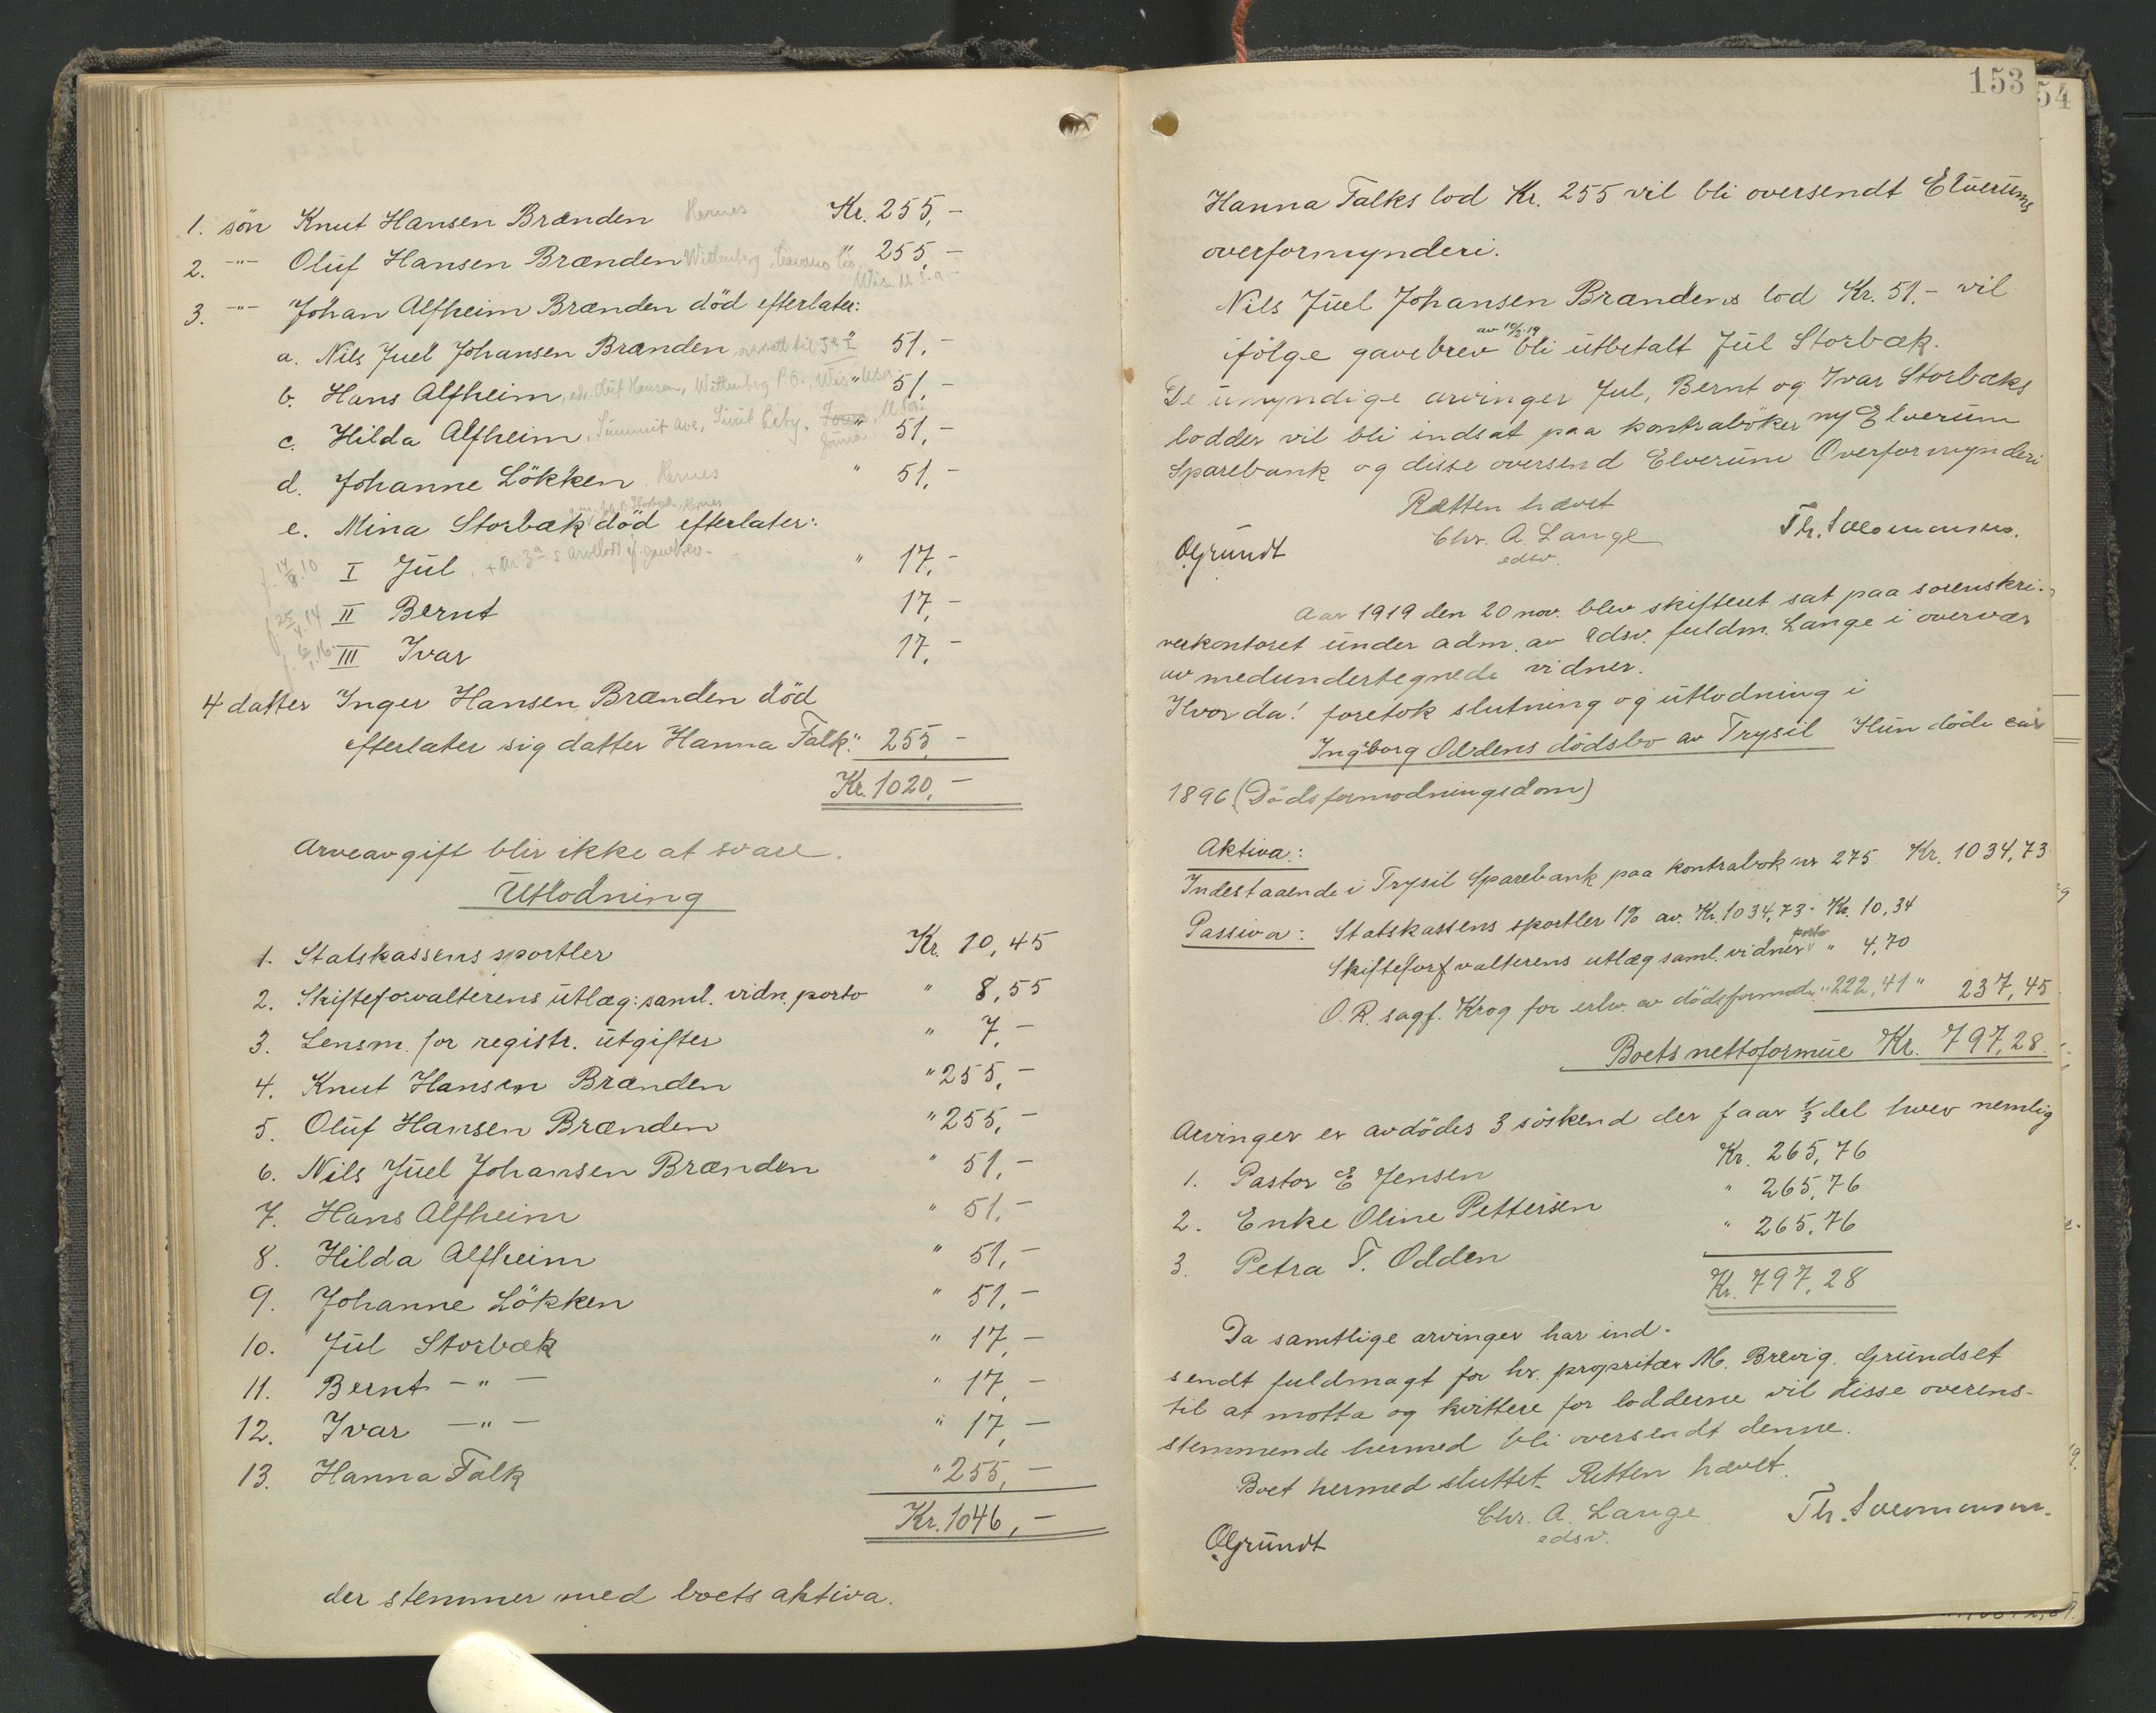 1. sön Knut Hansen Brænden Hernes Kr. 255,-
2. -"- Oluf Hansen Brænden Wittenberg, " 255,-
Wis. U.S.a
3. -"- Johan Alfheim Brænden död efterlater:
a. Nils Juel Johansen Brænden " 51,-
b. Hans Alfheim, adr. Oluf Hansen, Wittenberg P.O. Wis. Usa " 51,-
c. Hilda Alfheim, Summit Ave, U.Sa. " 51,-
d. Johanne Lökken, Hernes " 51,-
e. Mina Storbæk död efterlater:
f. 14/8.10 I Jul, + av 3a s arvelodd if. gavebrev. " 17,-
f. 25/4.14 II Bernt 17,-
III Ivar 17,-
4 datter Inger Hansen Brænden död
efterlater sig datter Hanna Falk " 255,-
Kr. 1020,-
Arveavgift blir ikke at svare.
Utlodning
1. Statskassens sportler Kr. 10,45
2. Skifteforvalterens utlæg: saml. vidn. porto " 8,55
3. Lensm. for registr. utgifter " 7,-
4. Knut Hansen Brænden " 255,-
5. Oluf Hansen Brænden " 255,-
6. Nils Juel Johansen Brænden " 51,-
7. Hans Alfheim " 51,-
8. Hilda Alfheim " 51,-
9. Johanne Lökken " 51,-
10. Jul Storbæk " 17,-
11. Bernt -"- " 17,-
12. Ivar -"- " 17,-
13. Hanna Falk " 255,-
Kr. 1046,-
der stemmer med boets aktiva.
153
54
Hanna Falks lod Kr. 255 vil bli oversendt Elverums
overformynderi.
Nils Juel Johansen Brændens lod Kr. 51.- vil
ifölge gavebrev bli utbetalt Jul Storbæk.
De umyndige arvinger Jul, Bernt og Ivar Storbæks
lodder vil bli indsat paa kontraböker ny Elverum
Sparebank og disse oversend Elverum Overformynderi
Rætten hævet
OGrundt Chr. A. Lange
edsv.
Aar 1919 den 20 nov. blev skifteret sat paa sorenskri-
verkontoret under adm. av edsv. fuldm. Lange i overvær
av medundertegnede vidner.
Hvor da! foretok slutning og utlodning i
Ingborg Oddens dödsbo av Trysil Hun döde
1896 (Dödsformodningsdom)
Aktiva:
Indestaaende i Trysil Sparebank paa kontrabok nr 275 Kr. 1034,73
Passiva: Statskassens sportler 1% av Kr. 1034,73 - Kr. 10,34
Skifteforvalterens utlæg saml. vidner porto " 4,70
O.R. sagf. Krog for erhv. av dödsformodn. " 222,41 " 237,45
Boets nettoformue Kr. 797,28
Arvinger er avdödes 3 söskend der faar 1/3 del hver nemlig
1. Pastor E Jensen Kr. 265,76
2. Enke Oline Pettersen " 265,76
3. Petra T. Odden " 265,76
Kr. 797,28
Da samtlige arvinger har ind-
sendt fuldmagt for hr. propritær M. Brevig. Grundset
til at motta og kvittere for lodderne vil disse overens-
stemmende hermed bli oversendt denne.
Boet hermed sluttet. Retten hævet.
OGrundt Chr. A. Lange
edsv.